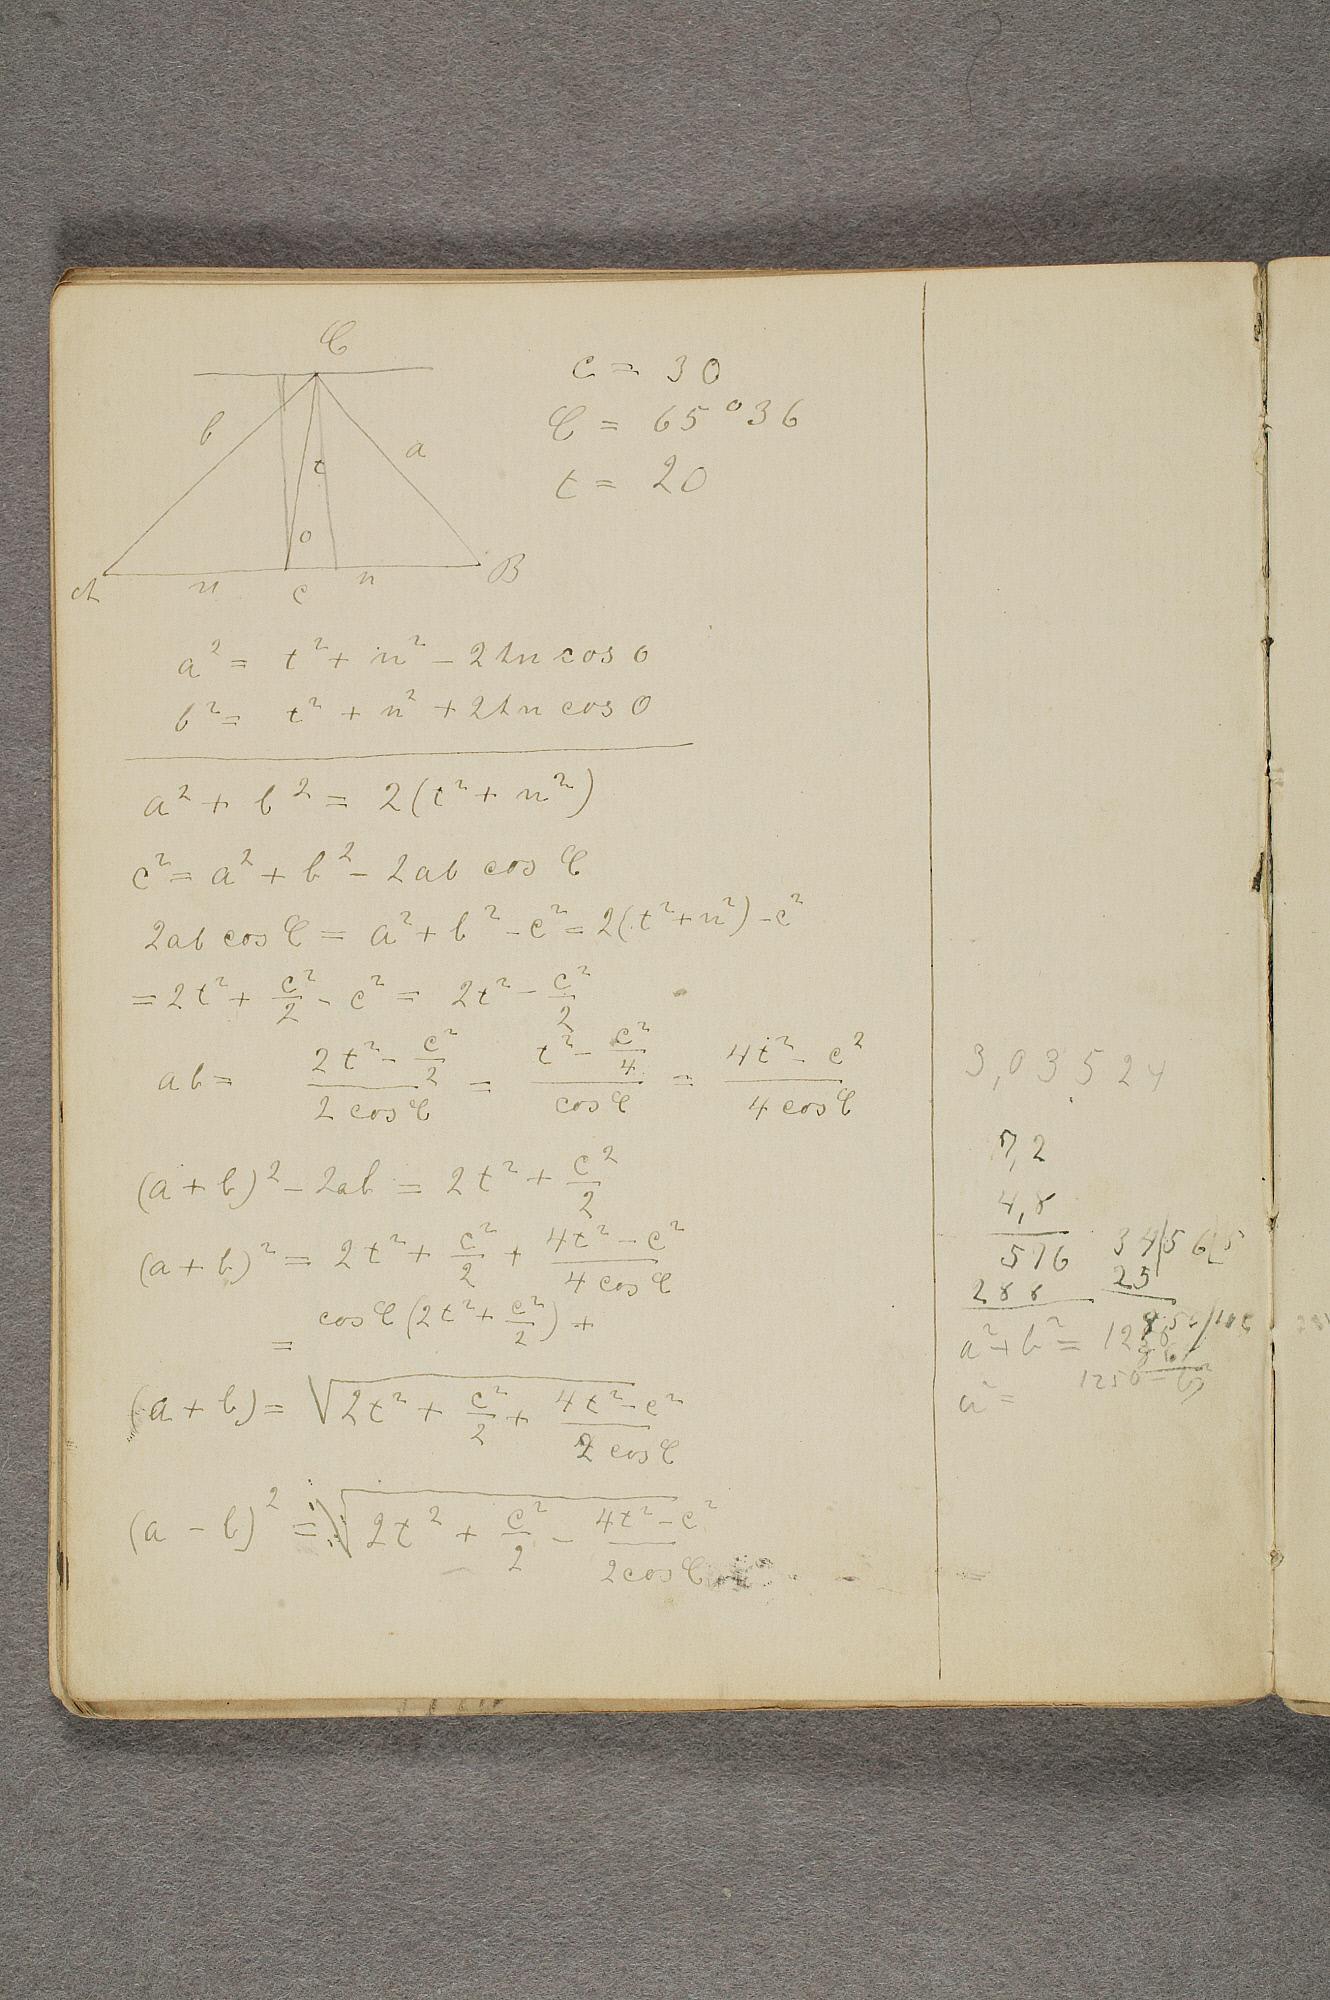 C
b
a
t
o
A
n
c
n
B
c = 30
C = 65°36
t = 20
a² = t² + n² - 2tn cos o
b² = t² + n² + 2tn cos o
a² + b² = 2(t² + n²)
c² = a² + b² - 2ab cos C
2ab cos C = a² + b² - c² = 2(t² + n²) - c²
= 2t² + c²/2 - c² = 2t² - c²/2
ab = (2t² - c²/2)/(2 cos C) = (t² - c²/4)/(cos C) = (4t² - c²)/(4 cos C)
(a + b)² - 2ab = 2t² + c²/2
(a + b)² = 2t² + c²/2 + (4t² - c²)/(4 cos C)
= cos C (2t² + c²/2) +
(a + b) = √(2t² + c²/2 + (4t² - c²)/(2 cos C))
(a - b)² = √(2t² + c²/2 - (4t² - c²)/(2 cos C))
3,03524
7,2
4,8
576
288
25
a² + b² = 1250
a² = 1250 - b²